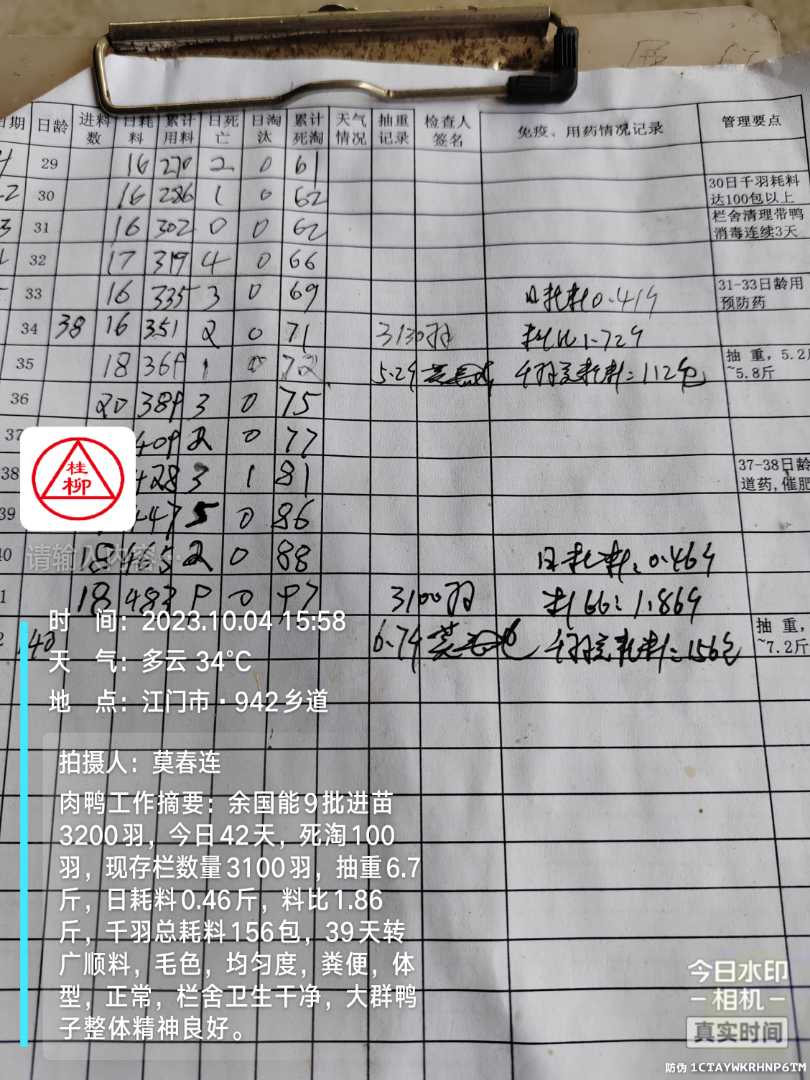 日期 日龄 进料数 日耗料 累计用料 日死亡 日淘汰 累计死淘 天气情况 抽重记录 检查人签名 免疫、用药情况记录 管理要点
29 16 270 2 0 61
30 16 286 1 0 62 30日千羽耗料达100包以上
31 16 302 0 0 62 栏舍清理带鸭消毒连续3天
32 17 319 4 0 66
33 16 335 3 0 69 日耗料0.41斤 31-33日龄用预防药
34 38 16 351 2 0 71 3130羽 料比1.72斤
35 18 369 1 0 72 5.2斤 千羽总耗料:112包 抽重,5.2斤~5.8斤
36 20 389 3 0 75
37 409 2 0 77
38 428 3 1 81 37-38日龄
道药,催肥
39 447 5 0 86
40 18 465 2 0 88 日耗料:0.46斤
18 483 9 0 97 3100羽 料比:1.86斤
140 6.7斤 千羽总耗料:156包 抽重,
~7.2斤
桂柳
请输入内容...
时 间:2023.10.04 15:58
天 气:多云 34℃
地 点:江门市·942乡道
拍摄人:莫春连
肉鸭工作摘要:余国能9批进苗
3200羽,今日42天,死淘100
羽,现存栏数量3100羽,抽重6.7
斤,日耗料0.46斤,料比1.86
斤,千羽总耗料156包,39天转
广顺料,毛色,均匀度,粪便,体
型,正常,栏舍卫生干净,大群鸭
子整体精神良好。
今日水印
相机
真实时间
防伪 1CTAYWKRHNP6TM